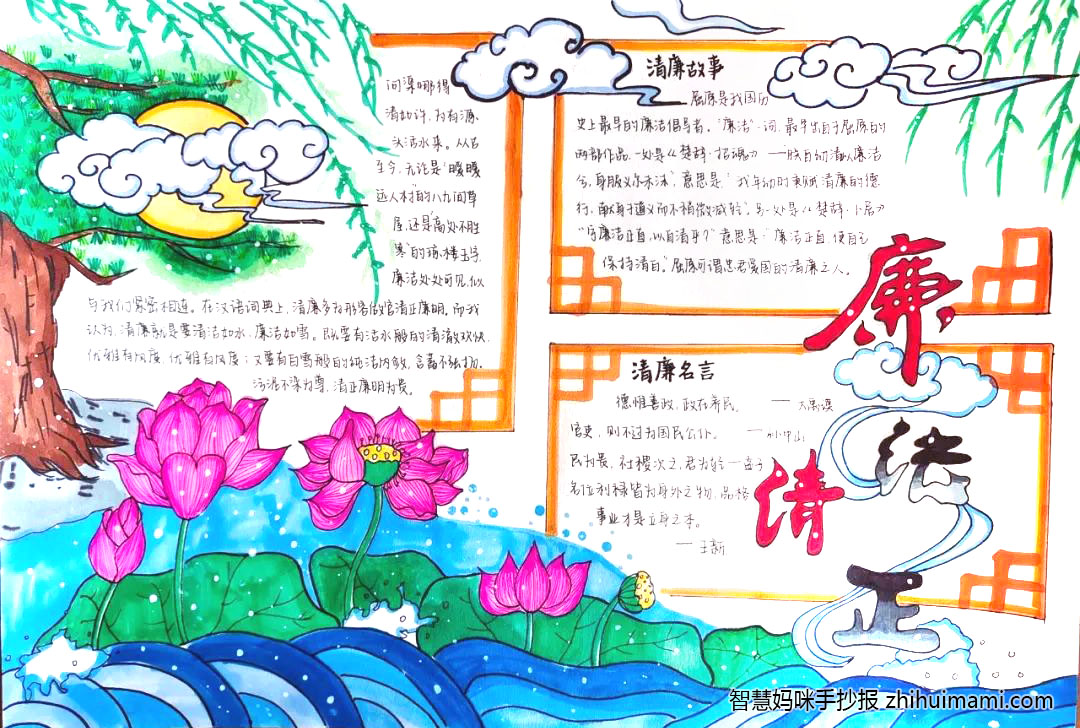 问渠哪得
清如许,为有源
头活水来。从古
至今,无论是“暖暖
远人村”的八九间草
屋,还是“高处不胜
寒”的琼楼玉宇,
廉洁处处可见,似
与我们紧密相连。在汉语词典上,清廉多为形容做官清正廉明,而我
认为,清廉就是要清洁如水,廉洁如雪。既要有活水般的清澈欢快,
优雅有风度;又要有白雪般的纯洁内敛,含蓄不张扬。
污泥不染为尊,清正廉明为长。
清廉故事
屈原是我国历
史上最早的廉洁倡导者。“廉洁”一词,最早出自于屈原的
两部作品,一处是《楚辞·招魂》——朕自幼清以廉洁
兮,身服义尔未沫”意思是“我年幼时秉赋清廉的德
行,献身于道义而不稍微减轻”。另一处是《楚辞·卜居》
“宁廉洁正直,以自清乎?”意思是:“廉洁正直,使自己
保持清白。”屈原可谓忠君爱国的清廉之人。
清廉名言
德惟善政,政在养民。——大禹谟
官吏,则不过为国民公仆。——孙中山
民为贵,社稷次之,君为轻——孟子
名位利禄皆为身外之物,品格
事业才是立身之本。
——王新
廉
洁
清
正
智慧妈咪手抄报 zhihuimami.com